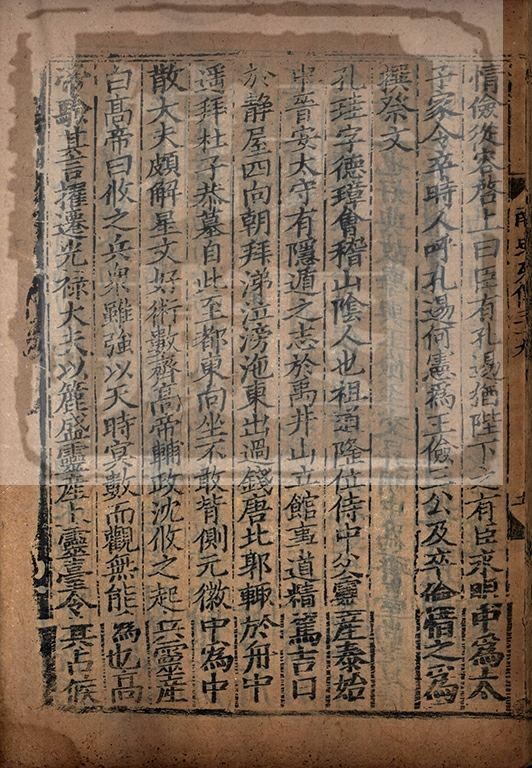 情儉從容啓上曰臣有孔逷猶陛下之有臣永明中爲太
子家令卒時人呼孔逷何憲爲王儉三公及卒儉惜之爲
撰祭文
孔珪字德璋會稽山陰人也祖道隆位侍中父靈産泰始
中晋安太守有隱遁之志於禹井山立館事道精篤吉日
於静屋四向朝拜涕泣滂沲東出過錢唐北郭輙於舟中
遥拜杜子恭墓自此至都東向坐不敢背側元徽中為中
散大夫頗解星文好術數齊高帝輔政沈攸之起兵靈産
白髙帝曰攸之兵衆雖强以天時冥數而觀無能為也髙
帝驗其言擢遷光禄大夫以簏盛靈産上靈臺令其占候